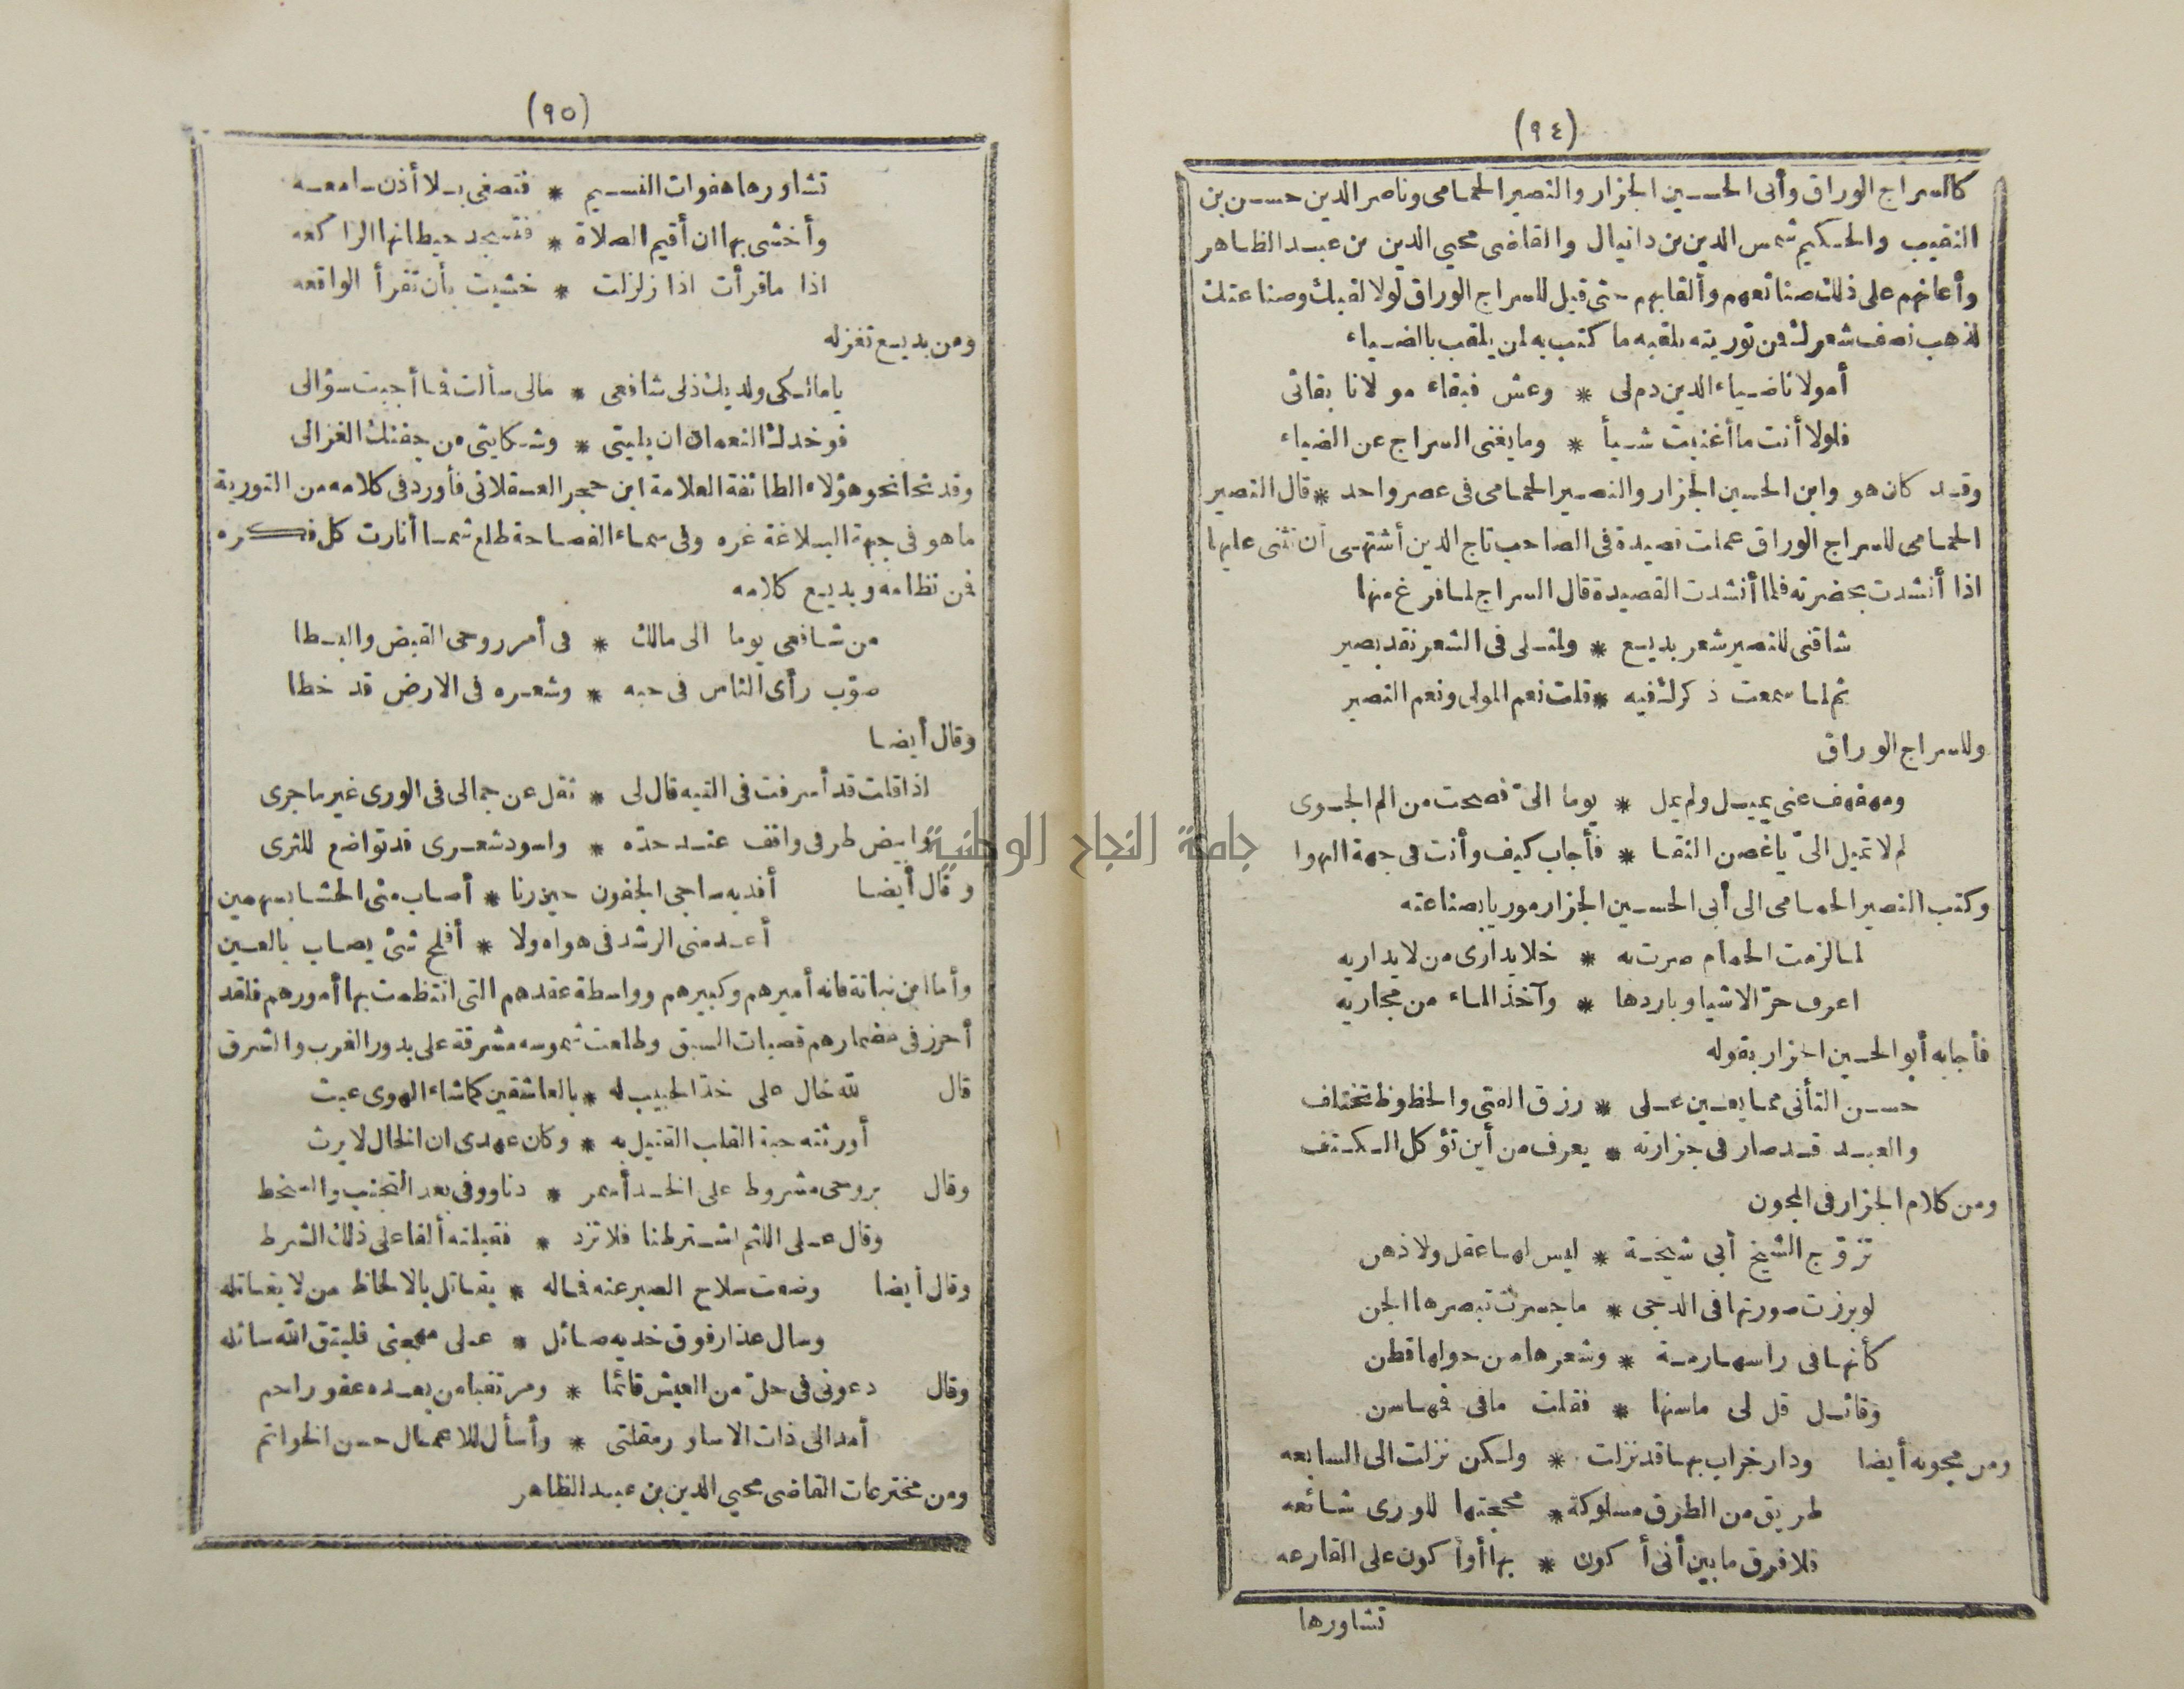 (٩٤)
كالسراج الوراق وأبى الحسين الجزار والنصير الحمامى وناصر الدين حسن بن
النقيب والحكيم شمس الدين بن دانيال والقاضى محيي الدين بن عبد الظاهر
وأعانهم على ذلك صنائعهم وألقابهم حتى قيل للسراج الوراق لولا لقبك وصناعتك
لذهب نصف شعرك فن توريته بلقبه ما كتب به لمن يلقب بالضياء
أمولانا ضياء الدين دم لى * وعش فبقاء مولانا بقائى
فلولا أنت ما أغنيت شيأ * وما يغنى السراج عن الضياء
وقد كان هو وابن الحسين الجزار والنصير الحمامى فى عصر واحد * قال النصير
الحمامى للسراج الوراق عملت قصيدة فى الصاحب تاج الدين أشتهى أن تثنى عليها
اذا أنشدت بحضرته فلما أنشدت القصيدة قال السراج لما فرغ منها
شاقنى للنصير شعر بديع * ولمثلى فى الشعر نقد بصير
ثم لما سمعت ذكرك فيه * قلت نعم المولى ونعم النصير
وللسراج الوراق
ومهفهف عنى يميل ولم يمل * يوما الىّ فصحت من الم الجوى
لم لا تميل الىّ يا غصن النقا * فأجاب كيف وأنت فى جهة الهوا
وكتب النصير الحمامى الى أبى الحسين الجزار موريا بصناعته
لما لزمت الحمام صرت به * خلا يدارى من لا يداريه
اعرف حرّ الاشيا وباردها * وآخذ الماء من مجاريه
فأجابه أبو الحسين الجزار بقوله
حسن التأنى مما يعين على * رزق الفتى والحظوظ تختلف
والعبد قد صار فى جزارته * يعرف من أين تؤكل الكتف
ومن كلام الجزار فى المجون
تزوّج الشيخ أبى شيخة * ليس لها عقل ولا ذهن
لو برزت صورتها فى الدجى * ما جسرت تبصرها الجن
كأنها فى راسها رمة * وشعرها من حولها قطن
وقائل قل لى ما سنها * فقلت ما فى فها سن
ومن مجونه أيضا ودار خراب بها قد نزلت * ولكن نزلت الى السابعه
طريق من الطرق مسلوكة * محجتها للورى شائعه
فلا فرق ما بين أنى أكون * بها أو أكون على القارعه
تشاورها
(٩٥)
تشاورها هفوات النسيم * فتصغى بلا أذن سامعه
وأخشى بها ان أقيم الصلاة * فتسجد حيطانها الراكعه
اذا ما قرأت اذا زلزلت * خشيت بأن تقرأ الواقعه
ومن بديع تغزله
يا مالكى ولديك ذلى شافعى * مالى سألت فما أجبت سؤالى
فوخدك النعمان ان بليتى * وشكايتى من جفنك الغزالى
وقد نحا نحو هؤلاء الطائفة العلامة ابن حجر العسقلانى فأورد فى كلامه من التورية
ما هو فى جبهة البلاغة غره وفى سماء الفصاحة طلع شمسا أنارت كل فكره
فن نظامه وبديع كلامه
من شافعى يوما الى مالك * فى أمر روحى القبض والبسطا
صوّب رأى الناس فى حبه * وشعره فى الارض قد خطا
وقال أيضا
اذا قلت قد أسرفت فى التيه قال لى * تقل عن جمالى فى الورى غير ما جرى
وابيض طرفى واقف عند حدّه * واسود شعرى قد تواضع للثرى
وقال أيضا أفديه ساجى الجفون حين رنا * أصاب منى الحشا بسهمين
أعدمنى الرشد فى هواه ولا * أفلح شئ يصاب بالعين
وأما ابن نباتة فانه أميرهم وكبيرهم وواسطة عقدهم التى انتظمت بها أمورهم فلقد
أحرز فى مضمارهم قصبات السبق وطلعت شموسه مشرقة على بدور الغرب والشرق
قال لله خال على خدّ الحبيب له * بالعاشقين كما شاء الهوى عبث
أورثته حبة القلب القتيل به * وكان عهدى ان الخال لا يرث
وقال بروحى مشروط على الخد أسمر * دنا ووفى بعد التجنب والسخط
وقال على اللثم اشترطنا فلا تزد * فقبلته ألفا على ذلك الشرط
وقال أيضا وضعت سلاح الصبر عنه فماله * يقاتل بالالحاظ من لا يقاتله
وسال عذار فوق خديه سائل * على مهجتى فليتق الله سائله
وقال دعونى فى حلّ من العيش قائما * ومرتقبا من بعده عفو راحم
أمد الى ذات الاساور مقلتى * وأسأل للاعمال حسن الخواتم
ومن مخترعات القاضى محيي الدين بن عبد الظاهر
جامعة النجاح الوطنية